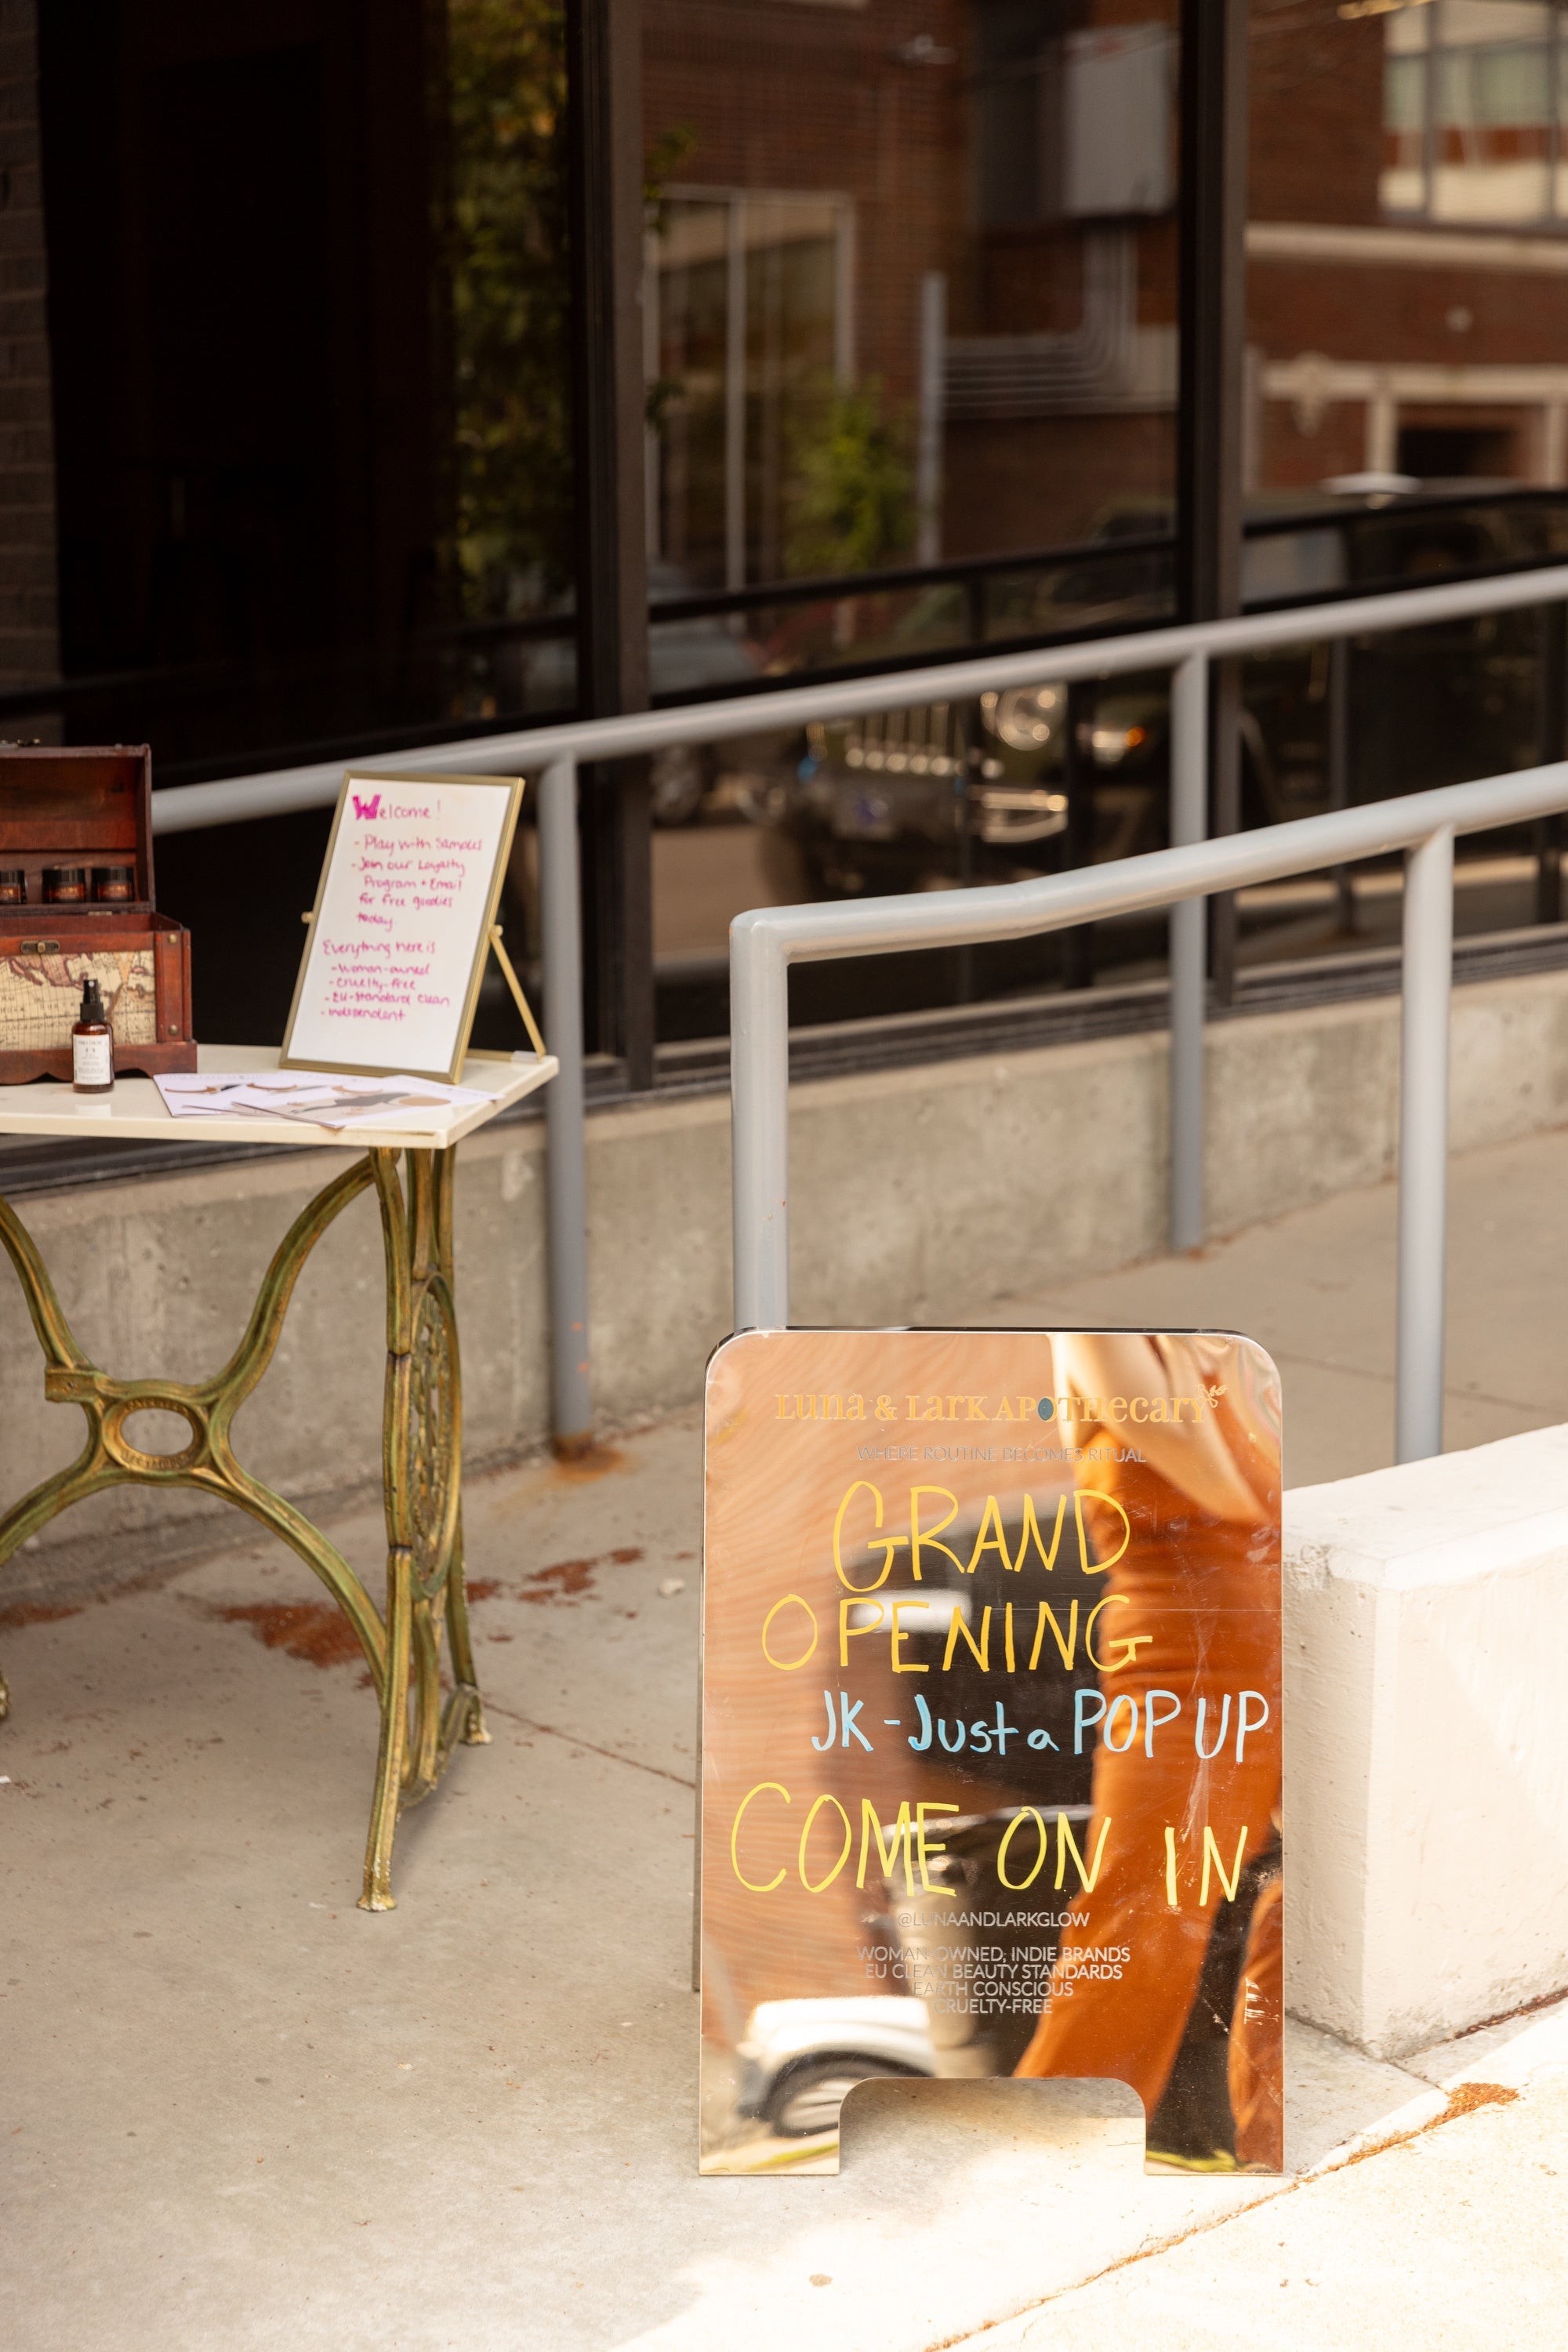 Welcome!
- Play with Samples
- Join our Loyalty
Program + Email
for free goodies
today.
Everything here is
- Woman-owned
- cruelty-free
- EU-standard clean
- independent
Luna & Lark APOTHecary
WHERE ROUTINE BECOMES RITUAL
GRAND
OPENING
JK - Just a POP UP
COME ON IN
@LUNAANDLARKGLOW
WOMAN OWNED, INDIE BRANDS
EU CLEAN BEAUTY STANDARDS
EARTH CONSCIOUS
CRUELTY-FREE